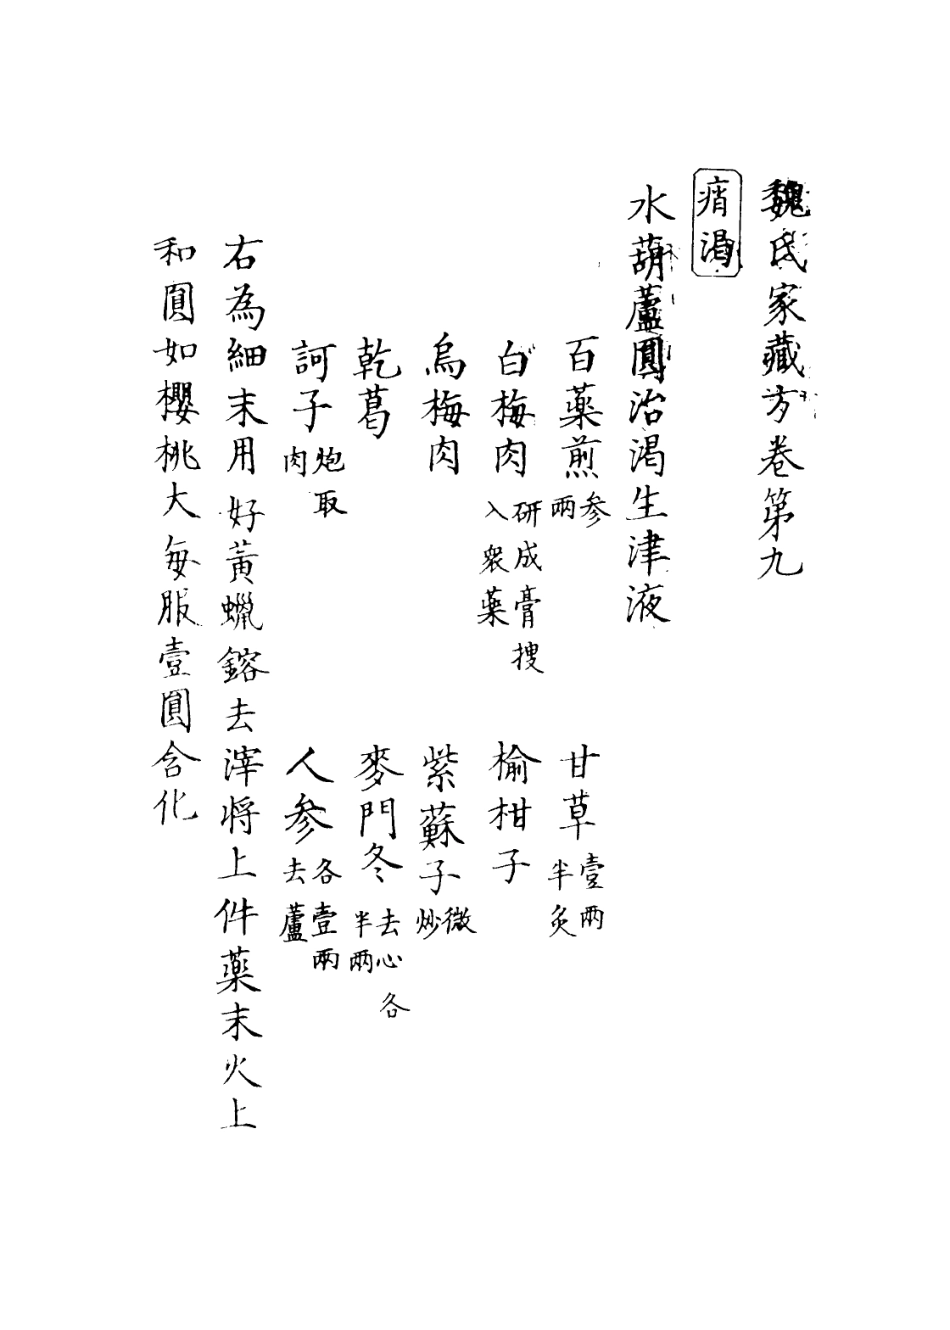 魏氏家藏方卷第九
痟渴
水葫蘆圓治渴生津液
百藥煎参兩　甘草壹兩半炙
白梅肉研成膏搜入衆藥　榆柑子
烏梅肉　紫蘇子微炒
乾葛　麥門冬去心各半兩
訶子炮取肉　人参各壹兩去蘆
右為細末用好黃蠟鎔去滓將上件藥末火上
和圓如櫻桃大每服壹圓含化